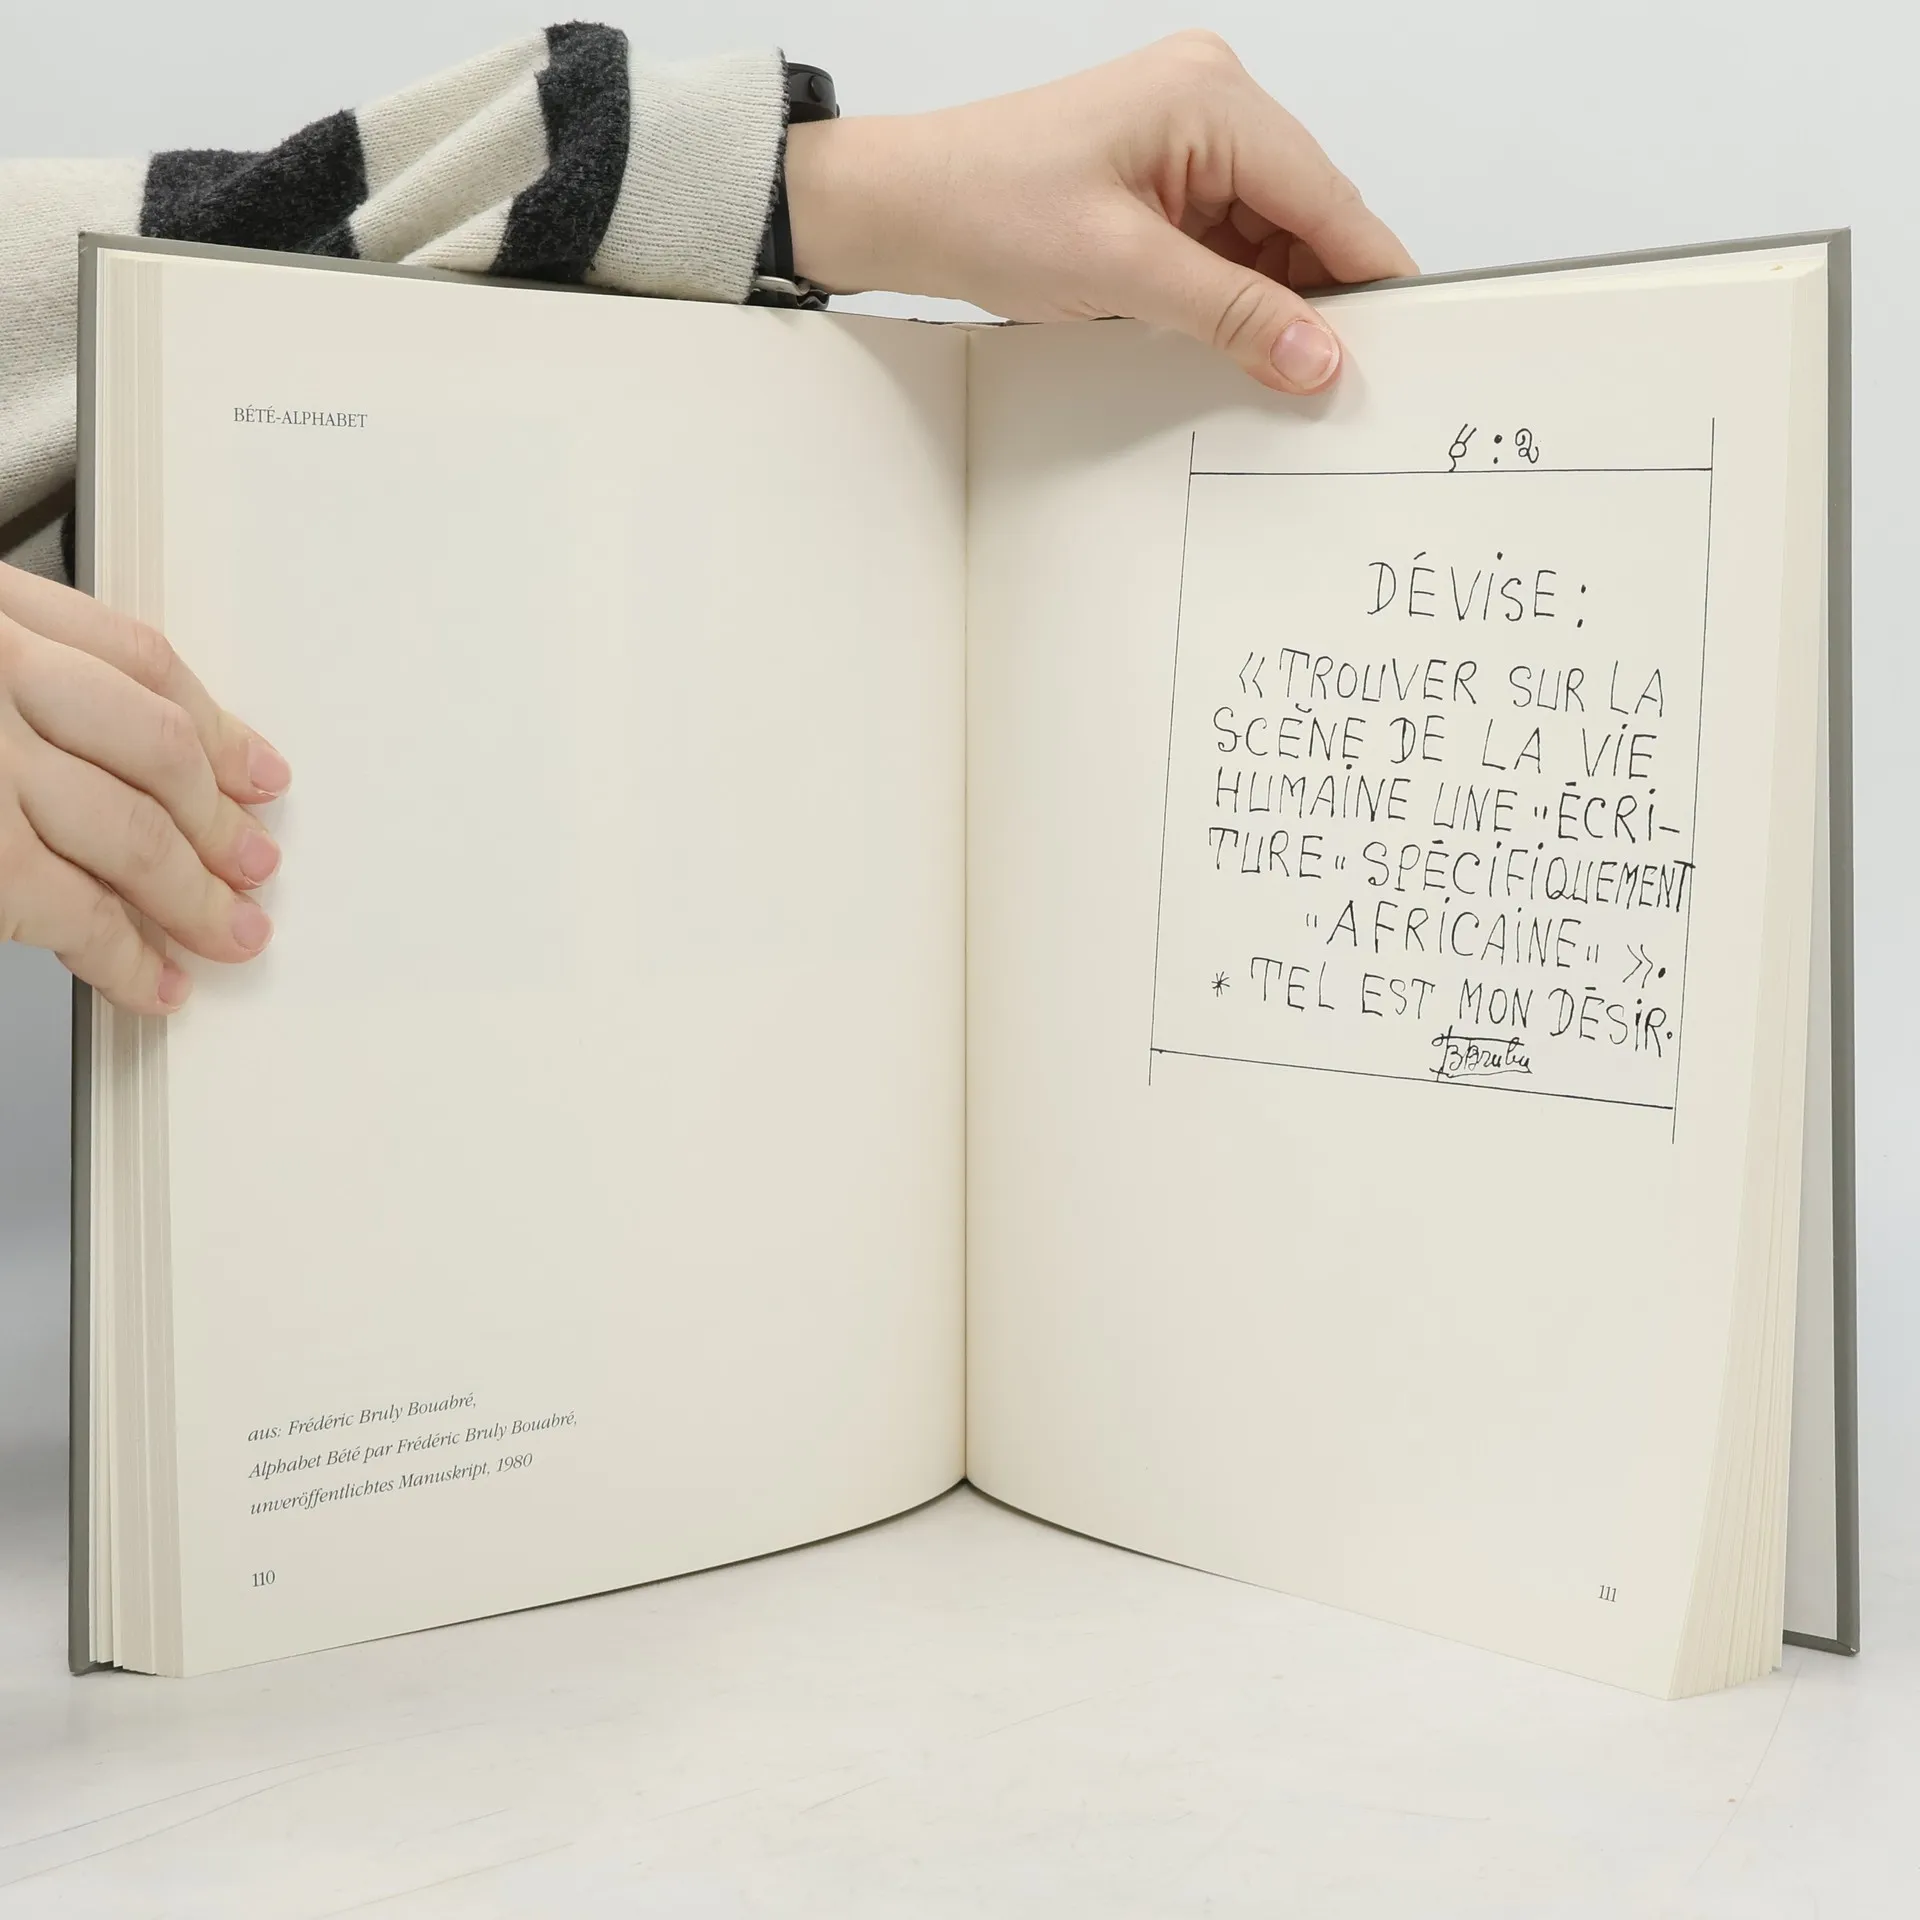 BÉTÉ-ALPHABET
aus: Frédéric Bruly Bouabré,
Alphabet Bété par Frédéric Bruly Bouabré,
unveröffentlichtes Manuskript, 1980
110
§ : 2
DÉVISE :
« TROUVER SUR LA
SCĔNE DE LA VIE
HUMAINE UNE "ÉCRI-
TURE" SPÉCIFIQUEMENT
"AFRICAINE" ».
* TEL EST MON DÉSIR.
111